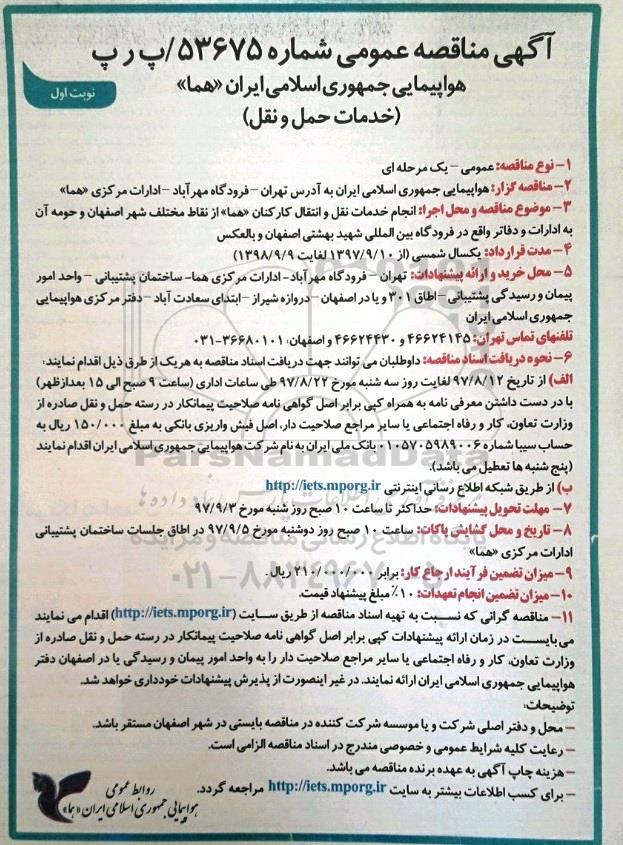 آگهی مناقصه عمومی شماره ۵۳۶۷۵/پ ر پ
هواپیمایی جمهوری اسلامی ایران «هما»
نوبت اول
(خدمات حمل و نقل)
۱- نوع مناقصه: عمومی - یک مرحله ای
۲- مناقصه گزار: هواپیمایی جمهوری اسلامی ایران به آدرس تهران - فرودگاه مهرآباد - ادارات مرکزی «هما»
۳- موضوع مناقصه و محل اجرا: انجام خدمات نقل و انتقال کارکنان «هما» از نقاط مختلف شهر اصفهان و حومه آن
به ادارات و دفاتر واقع در فرودگاه بین المللی شهید بهشتی اصفهان و بالعکس
۴- مدت قرارداد: یکسال شمسی (از ۱۳۹۷/۹/۱۰ لغایت ۱۳۹۸/۹/۹)
۵- محل خرید و ارائه پیشنهادات: تهران - فرودگاه مهرآباد - ادارات مرکزی هما - ساختمان پشتیبانی - واحد امور
پیمان و رسیدگی پشتیبانی - اطاق ۳۰۱ و یا در اصفهان - دروازه شیراز - ابتدای سعادت آباد - دفتر مرکزی هواپیمایی
جمهوری اسلامی ایران
تلفنهای تماس تهران: ۴۶۶۲۴۱۴۵ و ۴۶۶۲۴۴۳۰ و اصفهان: ۳۶۶۸۰۱۰۱-۰۳۱
۶- نحوه دریافت اسناد مناقصه: داوطلبان می توانند جهت دریافت اسناد مناقصه به هریک از طرق ذیل اقدام نمایند.
الف) از تاریخ ۹۷/۸/۱۲ لغایت روز سه شنبه مورخ ۹۷/۸/۲۲ طی ساعات اداری (ساعت ۹ صبح الی ۱۵ بعدازظهر)
با در دست داشتن معرفی نامه به همراه کپی برابر اصل گواهی نامه صلاحیت پیمانکار در رسته حمل و نقل صادره از
وزارت تعاون، کار و رفاه اجتماعی یا سایر مراجع صلاحیت دار، اصل فیش واریزی بانکی به مبلغ ۱۵۰/۰۰۰ ریال به
حساب سیبا شماره ۰۱۰۵۷۰۵۹۸۹۰۰۶ بانک ملی ایران به نام شرکت هواپیمایی جمهوری اسلامی ایران اقدام نمایند
(پنج شنبه ها تعطیل می باشد).
ب) از طریق شبکه اطلاع رسانی اینترنتی http://iets.mporg.ir
۷- مهلت تحویل پیشنهادات: حداکثر تا ساعت ۱۰ صبح روز شنبه مورخ ۹۷/۹/۳
۸- تاریخ و محل گشایش پاکات: ساعت ۱۰ صبح روز دوشنبه مورخ ۹۷/۹/۵ در اطاق جلسات ساختمان پشتیبانی
ادارات مرکزی «هما»
۹- میزان تضمین فرآیند ارجاع کار: برابر ۲۱۰/۰۰۰/۰۰۰ ریال.
۱۰- میزان تضمین انجام تعهدات: ۱۰٪ مبلغ پیشنهاد قیمت.
۱۱- مناقصه گرانی که نسبت به تهیه اسناد مناقصه از طریق سایت (http://iets.mporg.ir) اقدام می نمایند
می بایست در زمان ارائه پیشنهادات کپی برابر اصل گواهی نامه صلاحیت پیمانکار در رسته حمل و نقل صادره از
وزارت تعاون، کار و رفاه اجتماعی یا سایر مراجع صلاحیت دار را به واحد امور پیمان و رسیدگی یا در اصفهان دفتر
هواپیمایی جمهوری اسلامی ایران ارائه نمایند. در غیر اینصورت از پذیرش پیشنهادات خودداری خواهد شد.
توضیحات:
- محل و دفتر اصلی شرکت و یا موسسه شرکت کننده در مناقصه بایستی در شهر اصفهان مستقر باشد.
- رعایت کلیه شرایط عمومی و خصوصی مندرج در اسناد مناقصه الزامی است.
- هزینه چاپ آگهی به عهده برنده مناقصه می باشد.
- برای کسب اطلاعات بیشتر به سایت http://iets.mporg.ir مراجعه گردد.
روابط عمومی
هواپیمایی جمهوری اسلامی ایران «هما»
ParsNamadData
پایگاه اطلاع رسانی مناقصه و مزایده